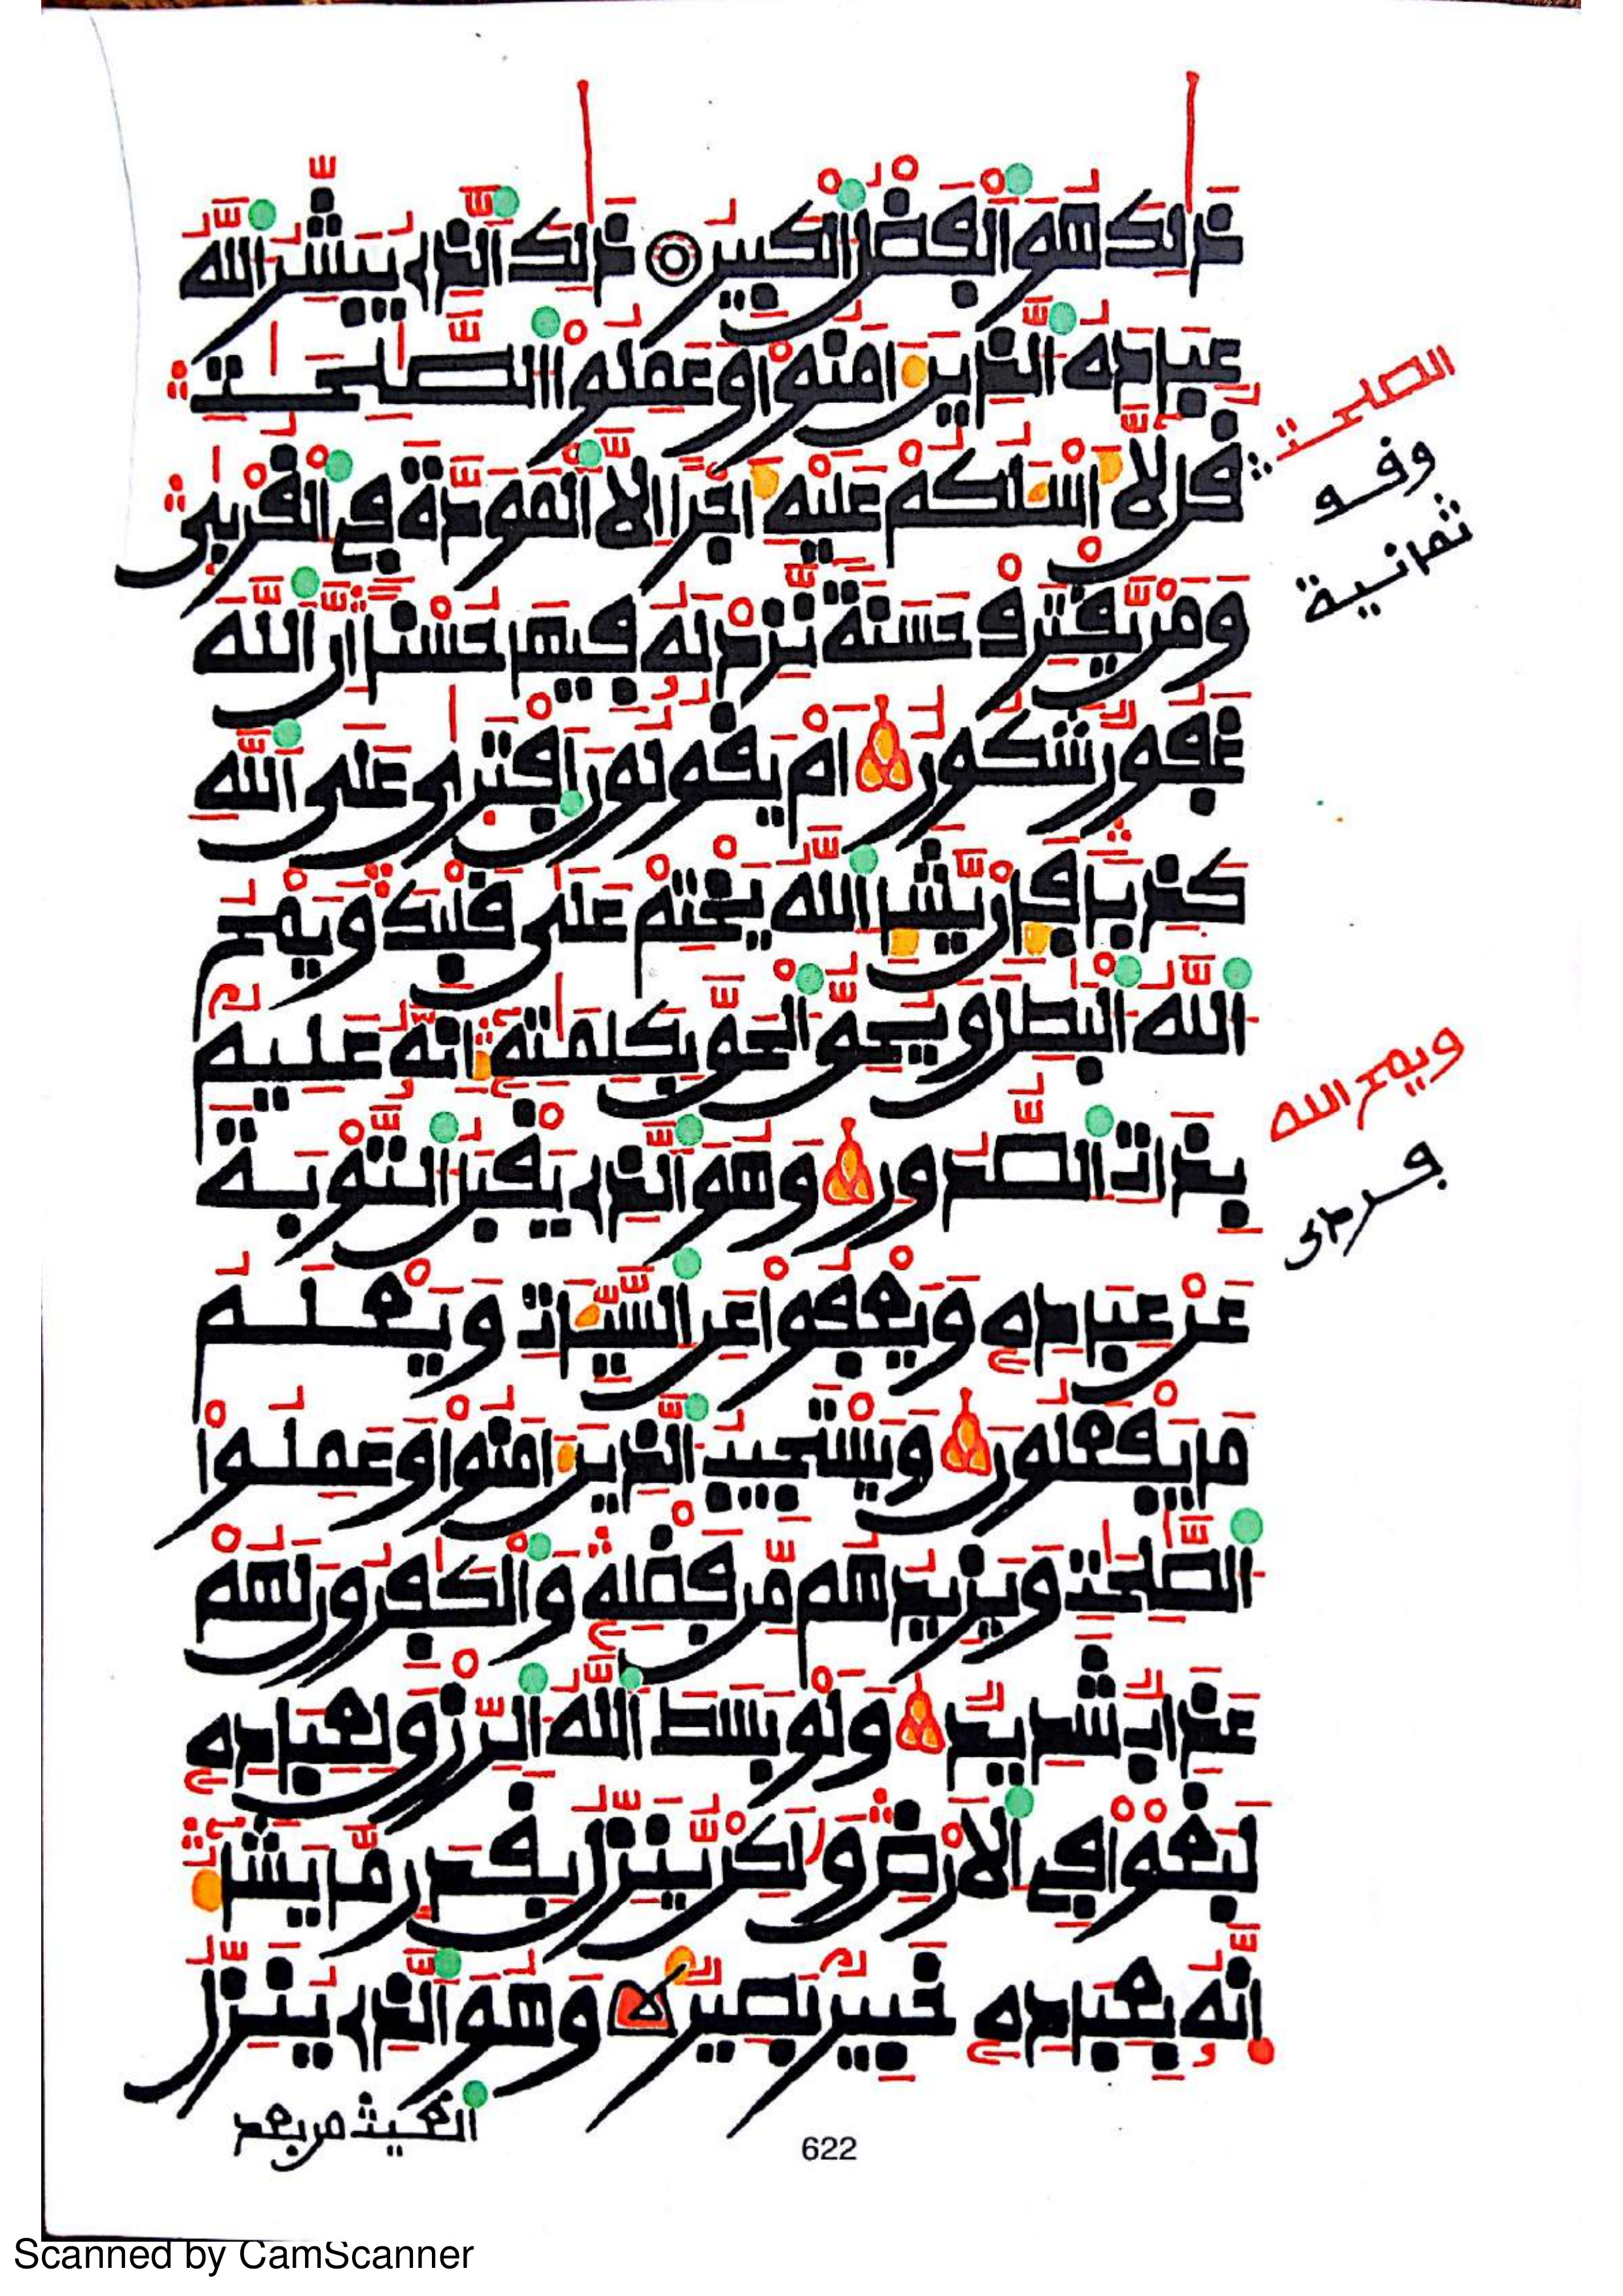 ذَٰلِكَ هُوَ ٱلْفَضْلُ ٱلْكَبِيرُ ۝ ذَٰلِكَ ٱلَّذِے يُبَشِّرُ ٱللَّهُ
عِبَادَهُ ٱلَّذِينَ ءَامَنُواْ وَعَمِلُواْ ٱلصَّٰلِحَٰتِ
قُل لَّآ أَسْـَٔلُكُمْ عَلَيْهِ أَجْراً اِلَّا ٱلْمَوَدَّةَ فِے ٱلْقُرْبَىٰ
وَمَنْ يَّقْتَرِفْ حَسَنَةً نَّزِدْ لَهُۥ فِيهَا حُسْناً اِنَّ ٱللَّهَ
غَفُورٌ شَكُورٌ ۝ اَمْ يَقُولُونَ ٱفْتَرَىٰ عَلَى ٱللَّهِ
كَذِباً فَإِنْ يَّشَإِ ٱللَّهُ يَخْتِمْ عَلَىٰ قَلْبِكَ وَيَمْحُ
ٱللَّهُ ٱلْبَٰطِلَ وَيُحِقُّ ٱلْحَقَّ بِكَلِمَٰتِهِۦٓ إِنَّهُۥ عَلِيمٌ
بِذَاتِ ٱلصُّدُورِ ۝ وَهُوَ ٱلَّذِے يَقْبَلُ ٱلتَّوْبَةَ
عَنْ عِبَادِهِۦ وَيَعْفُواْ عَنِ ٱلسَّيِّـَٔاتِ وَيَعْلَمُ
مَا يَفْعَلُونَ ۝ وَيَسْتَجِيبُ ٱلَّذِينَ ءَامَنُواْ وَعَمِلُواْ
ٱلصَّٰلِحَٰتِ وَيَزِيدُهُم مِّن فَضْلِهِۦ وَٱلْكَٰفِرُونَ لَهُمْ
عَذَابٌ شَدِيدٌ ۝ وَلَوْ بَسَطَ ٱللَّهُ ٱلرِّزْقَ لِعِبَادِهِۦ
لَبَغَوْاْ فِے ٱلْأَرْضِ وَلَٰكِنْ يُّنَزِّلُ بِقَدَرٍ مَّا يَشَآءُ
إِنَّهُۥ بِعِبَادِهِۦ خَبِيرٌ بَصِيرٌ ۝ وَهُوَ ٱلَّذِے يُنَزِّلُ
ٱلغيث من بعد
الصلحت
وقف
ثمانية
ويمح الله
فردى
622
Scanned by CamScanner